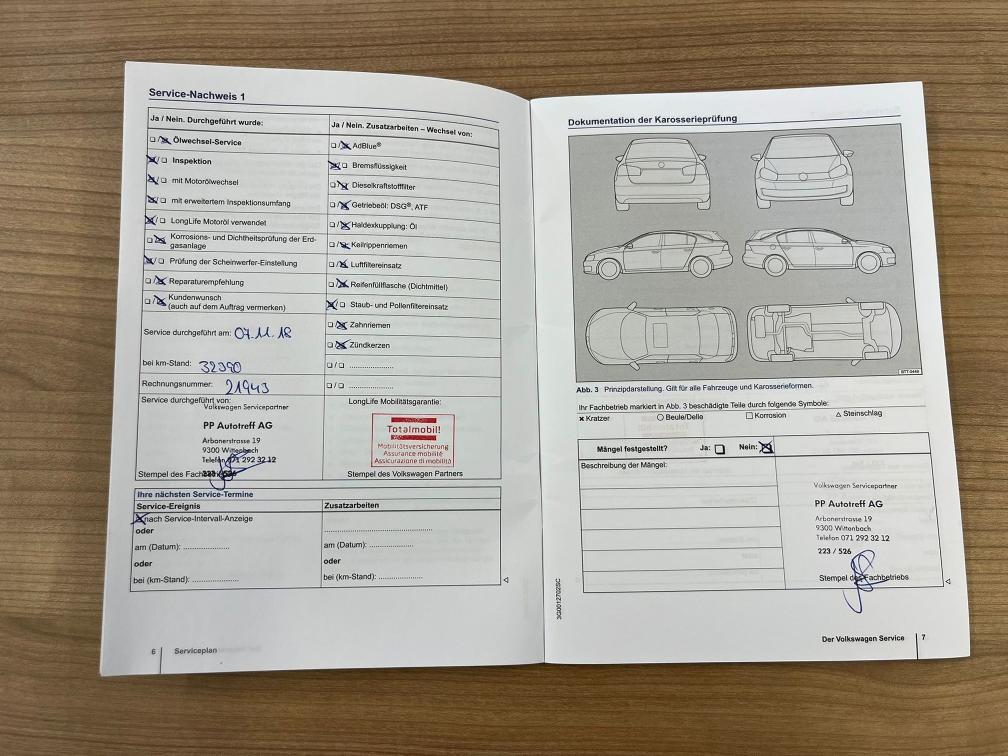 Service-Nachweis 1
Ja / Nein. Durchgeführt wurde:
☐/☒ Ölwechsel-Service
☒/☐ Inspektion
☒/☐ mit Motorölwechsel
☒/☐ mit erweitertem Inspektionsumfang
☒/☐ LongLife Motoröl verwendet
☐/☒ Korrosions- und Dichtheitsprüfung der Erd-
gasanlage
☒/☐ Prüfung der Scheinwerfer-Einstellung
☐/☒ Reparaturempfehlung
☐/☒ Kundenwunsch
(auch auf dem Auftrag vermerken)
Service durchgeführt am: 07.11.18
bei km-Stand: 32390
Rechnungsnummer: 21943
Service durchgeführt von:
Volkswagen Servicepartner
PP Autotreff AG
Arbonerstrasse 19
9300 Wittenbach
Telefon 071 292 32 12
223 / 526
Stempel des
Ja / Nein. Zusatzarbeiten – Wechsel von:
☐/☒ AdBlue®
☒/☐ Bremsflüssigkeit
☐/☒ Dieselkraftstofffilter
☐/☒ Getriebeöl: DSG®, ATF
☐/☒ Haldexkupplung: Öl
☐/☒ Keilrippenriemen
☐/☒ Luftfiltereinsatz
☐/☒ Reifenfüllflasche (Dichtmittel)
☒/☐ Staub- und Pollenfiltereinsatz
☐/☒ Zahnriemen
☐/☒ Zündkerzen
☐/☐ ....................
☐/☐ ....................
LongLife Mobilitätsgarantie:
Totalmobil!
Mobilitätsversicherung
Assurance mobilité
Assicurazione di mobilità
Stempel des Volkswagen Partners
Ihre nächsten Service-Termine
Service-Ereignis
☒ nach Service-Intervall-Anzeige
oder
am (Datum): ....................
oder
bei (km-Stand): ....................
Zusatzarbeiten
....................
am (Datum): ....................
oder
bei (km-Stand): ....................
6 Serviceplan
Dokumentation der Karosserieprüfung
BTT-0449
Abb. 3 Prinzipdarstellung. Gilt für alle Fahrzeuge und Karosserieformen.
Ihr Fachbetrieb markiert in Abb. 3 beschädigte Teile durch folgende Symbole:
✖ Kratzer ○ Beule/Delle ☐ Korrosion △ Steinschlag
Mängel festgestellt? Ja: ☐ Nein: ☒
Beschreibung der Mängel:
Volkswagen Servicepartner
PP Autotreff AG
Arbonerstrasse 19
9300 Wittenbach
Telefon 071 292 32 12
223 / 526
Stempel des Fachbetriebs
3G0012702SC
Der Volkswagen Service 7